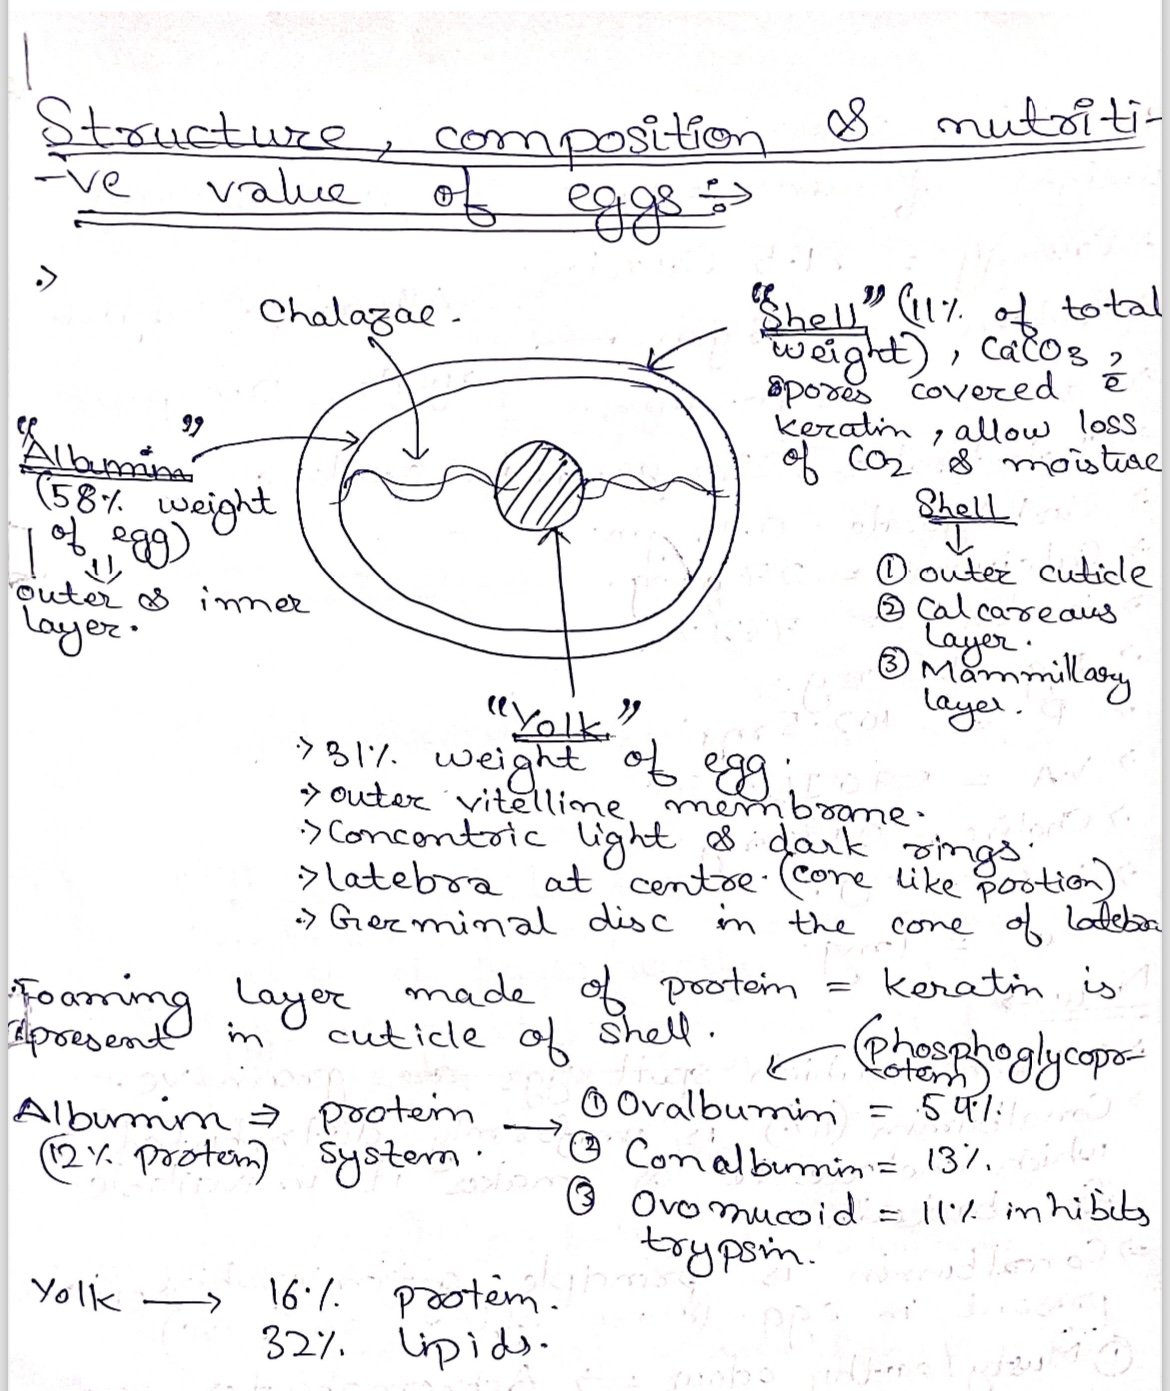 Structure, composition & nutriti-
-ve value of eggs ÷→
Chalazae.
"Shell" (11% of total
weight), CaCO3,
spores covered c̄
keratin, allow loss
of CO2 & moisture
"Albumin"
(58% weight
of egg)
outer & inner
layer.
Shell
① outer cuticle
② Calcareaus
layer.
③ Mammillary
layer.
"Yolk"
31% weight of egg.
outer vitelline membrane.
Concentric light & dark rings.
latebra at centre. (core like portion)
Germinal disc in the cone of latebra
Foaming layer made of protein = keratin is
present in cuticle of shell.
(phosphoglycopr-
otein)
Albumin ⇒ protein → ① Ovalbumin = 54%.
(12% protein) system. ② Conalbumin = 13%.
③ Ovomucoid = 11% inhibits
trypsin.
Yolk → 16% protein.
32% lipids.